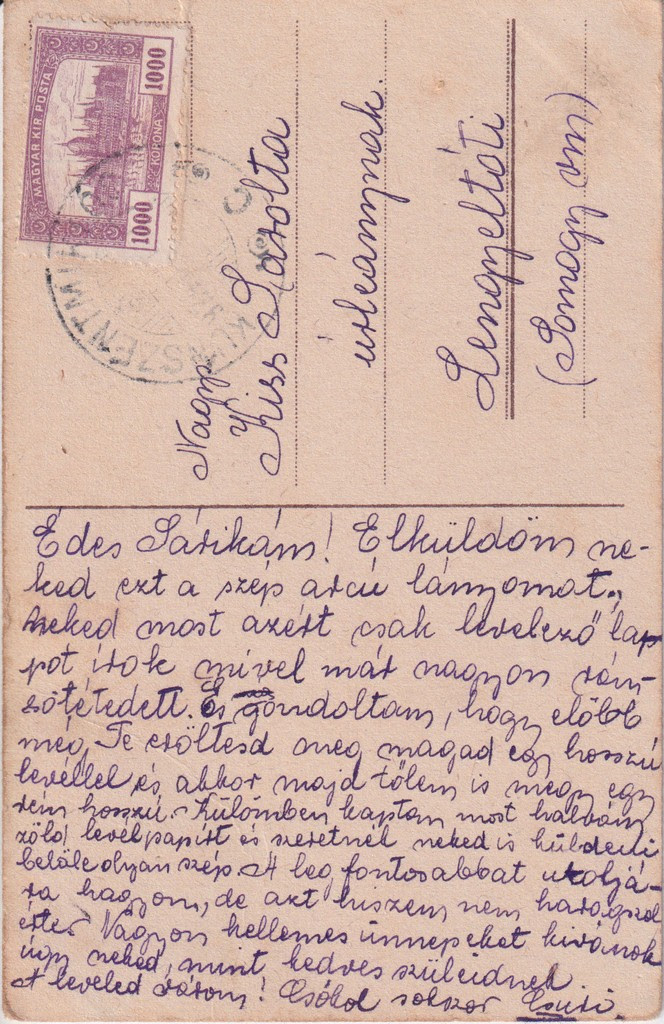 MAGYAR KIR. POSTA
1000
1000
KORONA
KUNSZENTMI
Nagys
Kiss Sarolta
úrleánynak.
Lengyeltóti
(Somogy vm)
Édes Sárikám! Elküldöm ne-
ked ezt a szép arcú lányomat.,
neked most azért csak levelező lap
pot írok mivel már nagyon rám
sötétedett. És gondoltam, hogy előbb
még Te eröltesd meg magad egy hosszú
levéllel, és akkor majd tőlem is megy egy
rém hosszú. Külömben kaptam most halvány
zöld levélpapírt és szeretnék neked is küldeni
belőle olyan szép. A leg fontosabbat utoljá-
ra hagyom, de azt hiszem nem haragszol
érte. Nagyon kellemes ünnepeket kivánok
úgy neked, mint kedves szüleidnek.
A leveled várom! Csókol sokszor